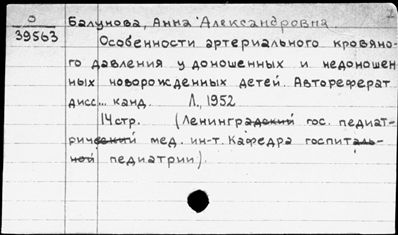 О
39563
Балунова, Анна Александровна
Особенности артериального кровяно-
го давления у доношенных и недоношен
ных новорожденных детей. Автореферат
дисс... канд. Л., 1952
14 стр. (Ленинградский гос. педиат-
рический мед. ин-т. Кафедра госпиталь-
ной педиатрии).